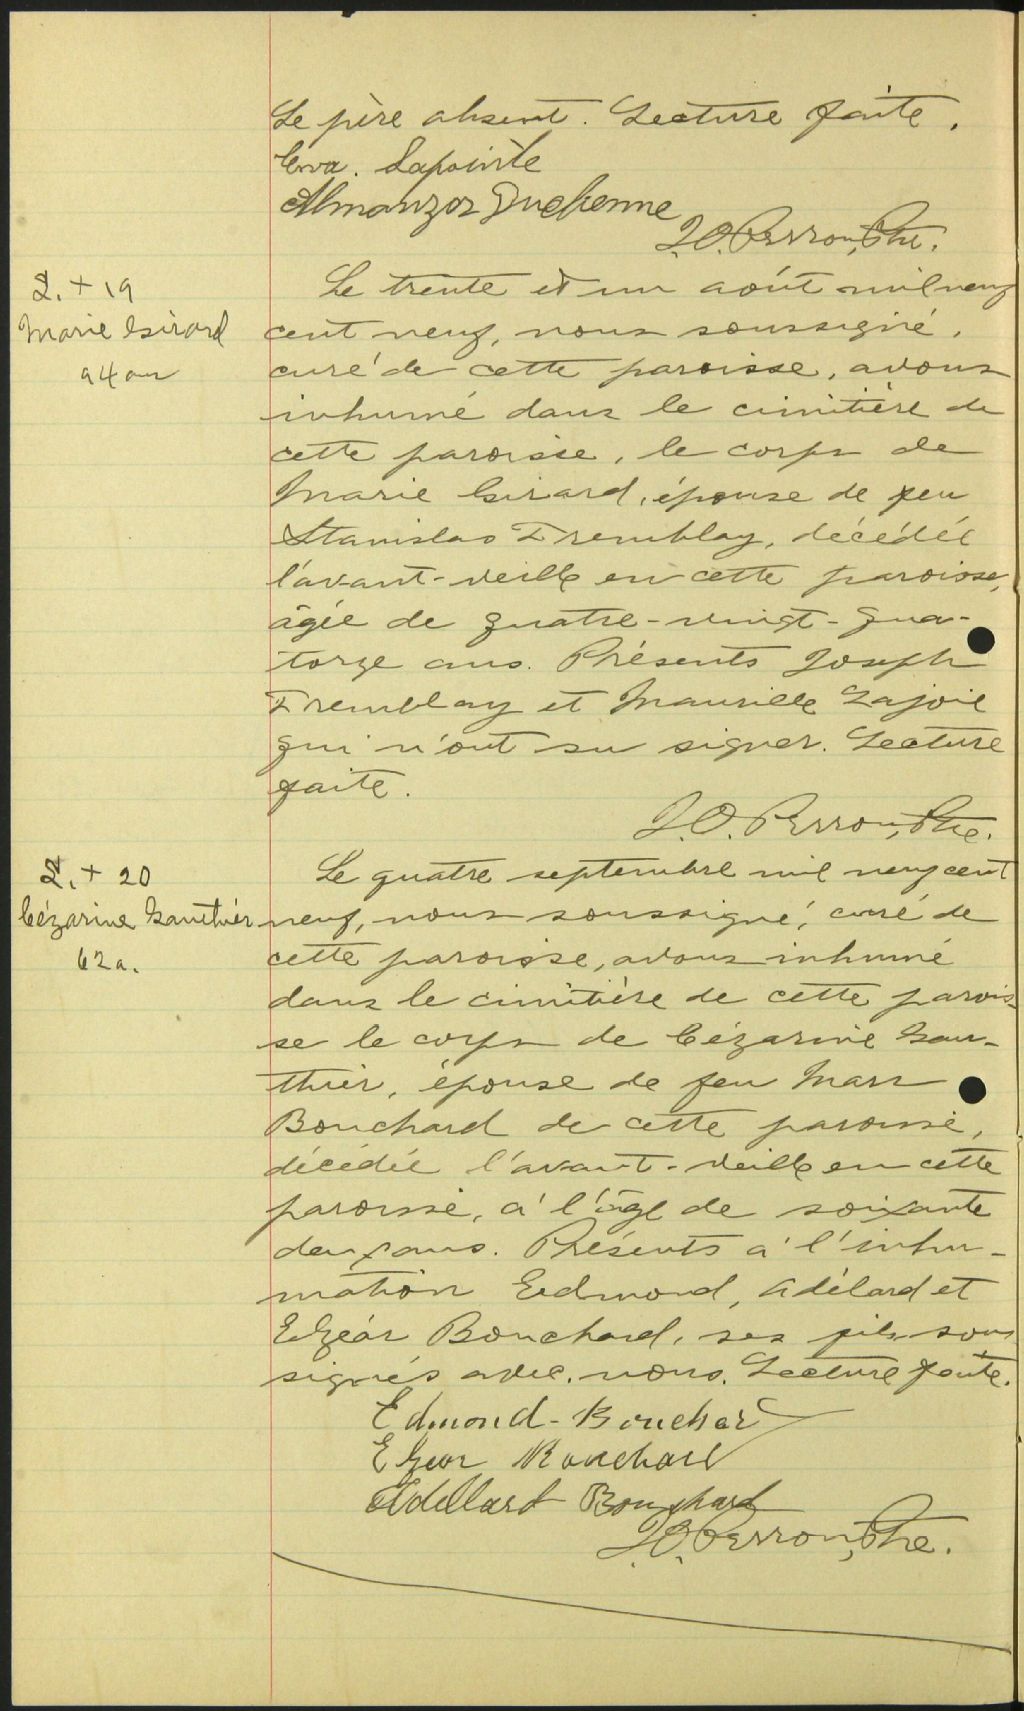 Le père absent. Lecture faite.
Eva. Lapointe
Almanzor Duchenne
J.O. Perron, Ptre.
S. + 19
Marie Girard
94 ans
Le trente et un août mil neuf
cent neuf, nous soussigné,
curé de cette paroisse, avons
inhumé dans le cimitière de
cette paroisse, le corps de
Marie Girard, épouse de feu
Stanislas Tremblay, décédée
l'avant-veille en cette paroisse,
âgée de quatre-vingt-qua-
torze ans. Présents Joseph
Tremblay et Maurille Lajoie
qui n'ont su signer. Lecture
faite.
J.O. Perron, Ptre.
S. + 20
Cézarine Gauthier
62 a.
Le quatre septembre mil neuf cent
neuf, nous soussigné, curé de
cette paroisse, avons inhumé
dans le cimitière de cette parois-
se le corps de Cézarine Gau-
thier, épouse de feu Mars
Bouchard de cette paroisse,
décédée l'avant-veille en cette
paroisse, à l'âge de soixante
deux ans. Présents à l'inhu-
mation Edmond, Adélard et
Elzéar Bouchard, ses fils sous
signés avec nous. Lecture faite.
Edmond - Bouchard
Elzear Bouchard
Adellard Bouchard
J.O. Perron, Ptre.